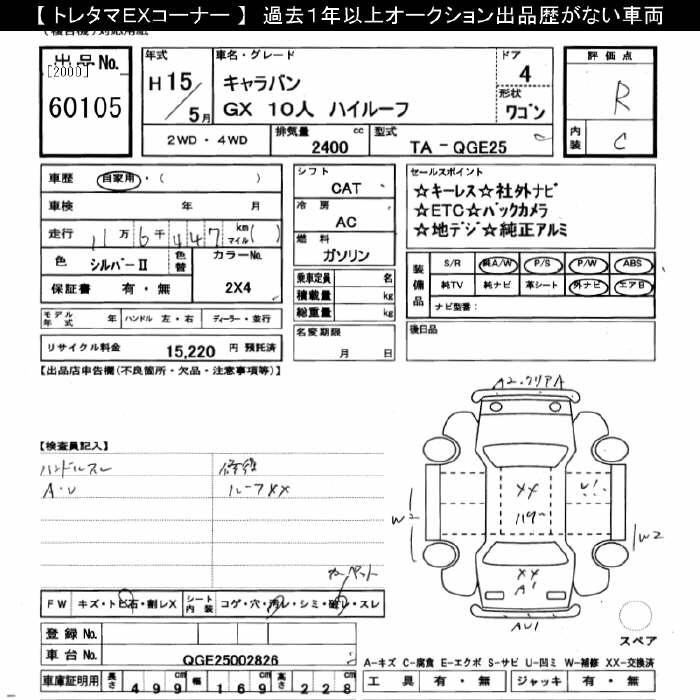 【 トレタマEXコーナー 】 過去1年以上オークション出品歴がない車両
出品No.
[2000]
60105
年式
H15/5月
車名・グレード
キャラバン
GX 10人 ハイルーフ
ドア
4
形状
ワゴン
評価点
R
内装
C
2WD ・ 4WD
排気量 cc
2400
型式
TA - QGE25
車歴 自家用・( )
車検 年 月
走行 11万6千447 km マイル( )
色 シルバーⅡ
色替
カラーNo.
2X4
保証書 有・無
モデル年式 年
ハンドル 左・右
ディーラー・並行
リサイクル料金 15,220 円 預託済
シフト
CAT
冷房
AC
燃料
ガソリン
乗車定員 名
積載量 kg
総重量 kg
名変期限
月 日
セールスポイント
☆キーレス☆社外ナビ
☆ETC☆バックカメラ
☆地デジ☆純正アルミ
装備品
S/R 純A/W P/S P/W ABS
純TV 純ナビ 革シート 外ナビ エアB
ナビ型番:
後日品
【出品店申告欄(不良箇所・欠品・注意事項等)】
【検査員記入】
ハンドルスレ
A・U
修復
ルーフXX
カーペット
A2.クリアA
XX
W2
U!
W2
XX
A1
AU1
FW キズ・トビ石・割レX
シート内装 コゲ・穴・汚レ・シミ・破レ・スレ
登録No.
車台No. QGE25002826
スペア
A-キズ C-腐食 E-エクボ S-サビ U-凹ミ W-補修 XX-交換済
車庫証明用 長さ 499cm 幅 169cm 高さ 228cm
工具 有・無 ジャッキ 有・無